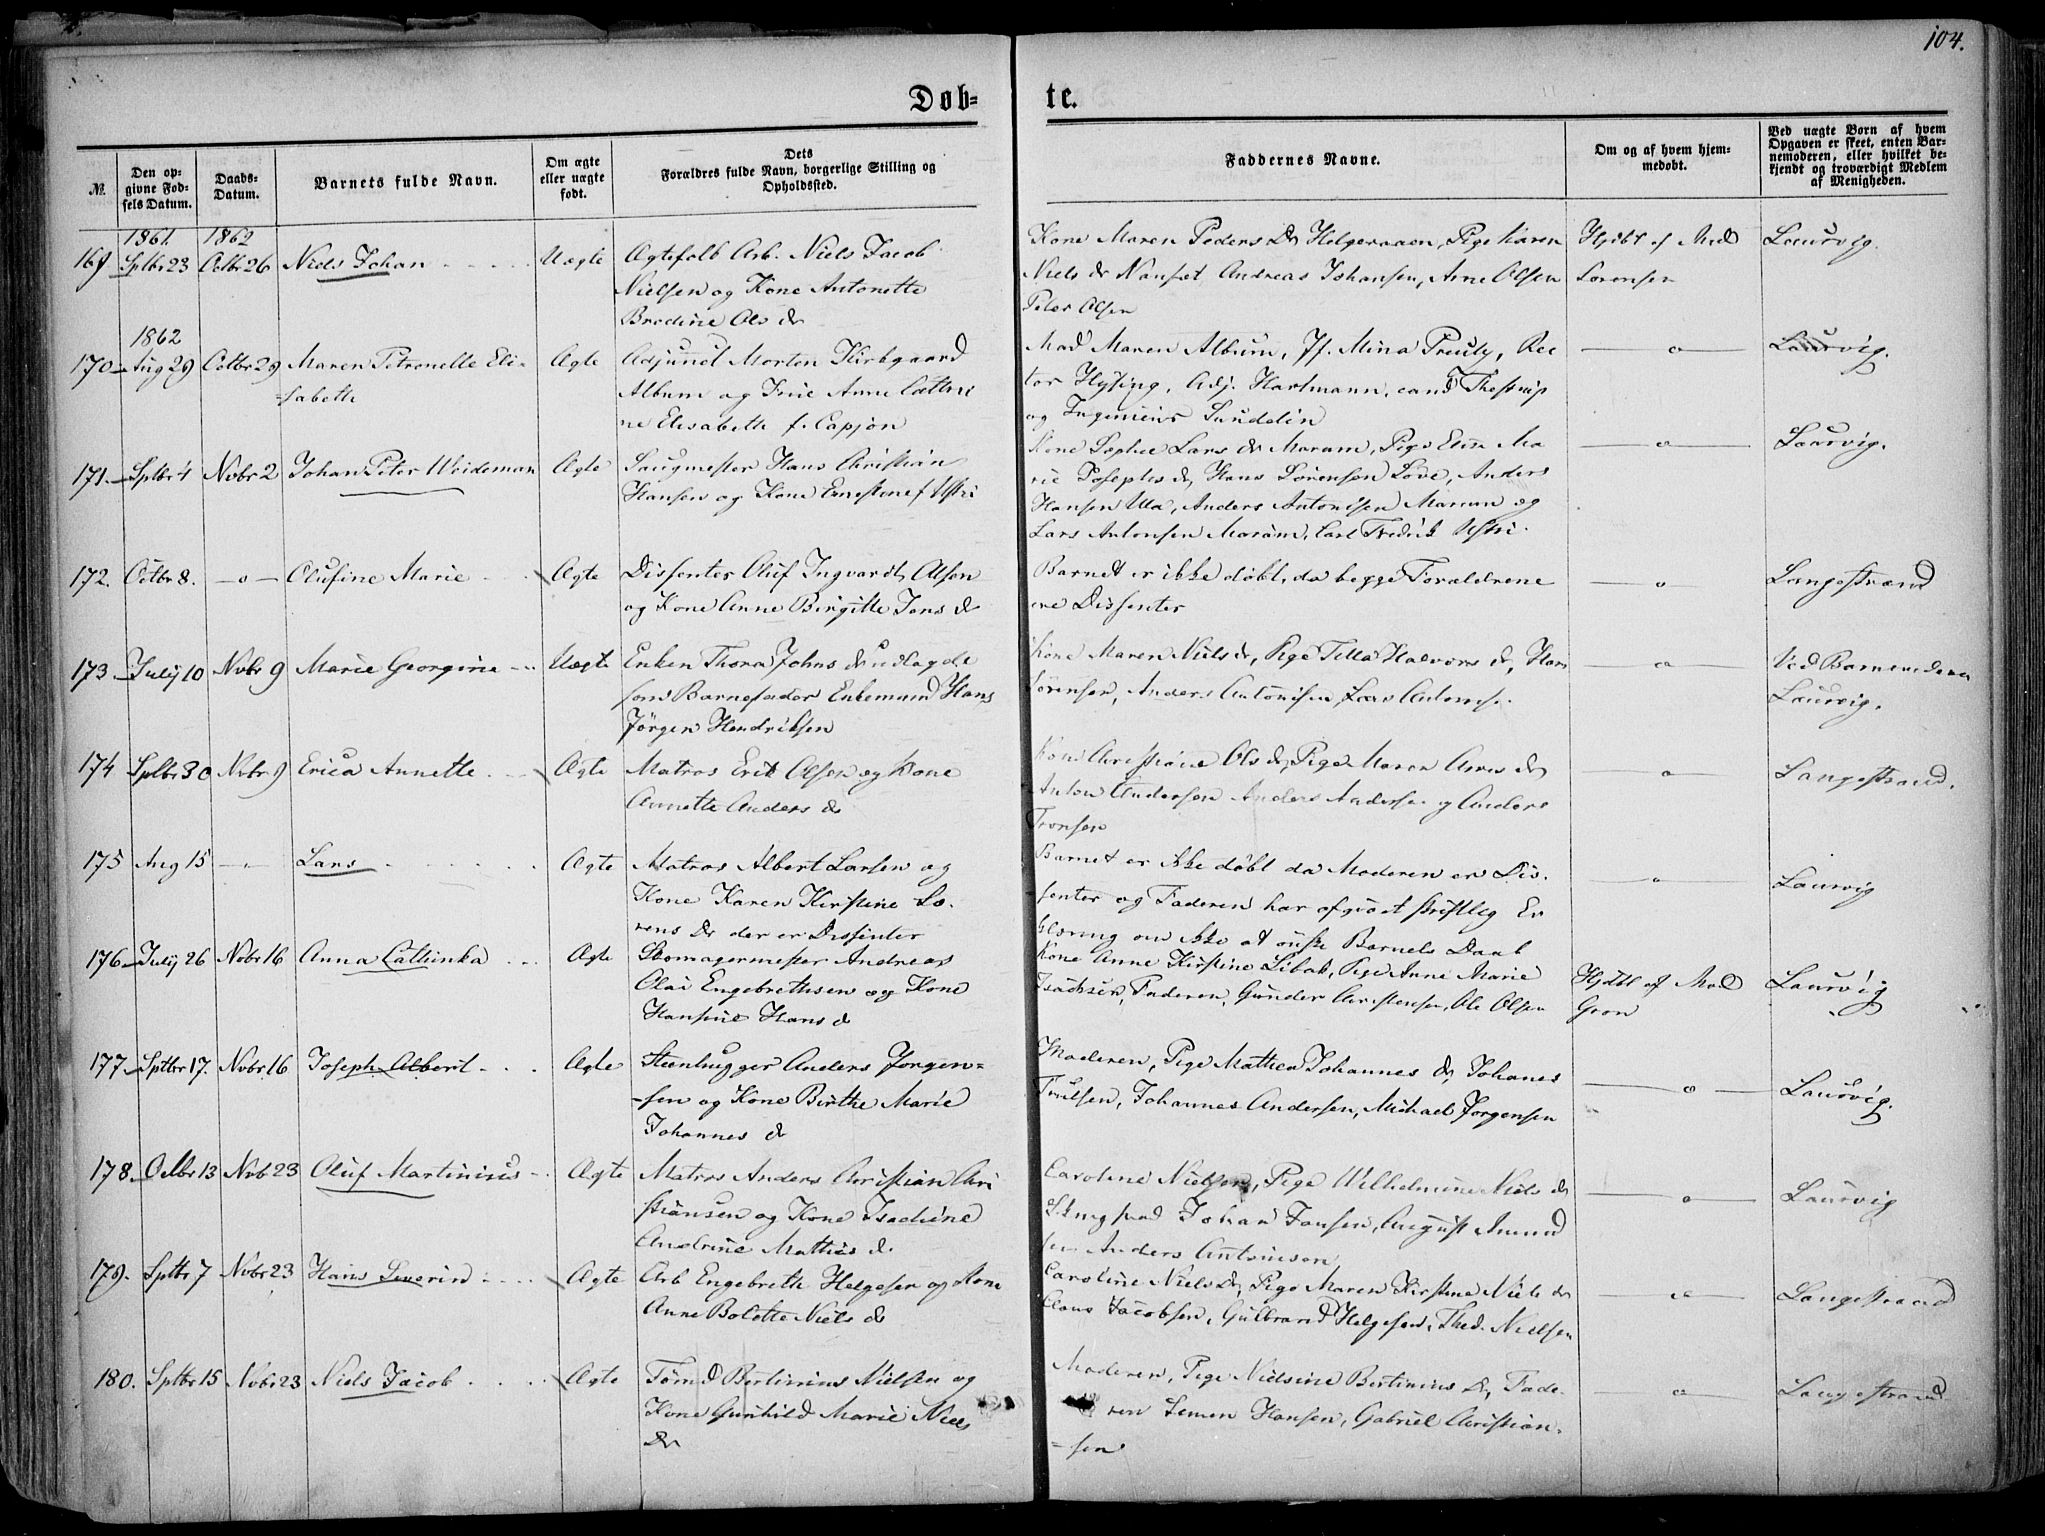 104.
Døb=
te.
№.
Den op-
givne Fød-
sels Datum.
Daabs-
Datum.
Barnets fulde Navn.
Om ægte
eller uægte
født.
Dets
Forældres fulde Navn, borgerlige Stilling og
Opholdssted.
Faddernes Navne.
Om og af hvem hjem-
medøbt.
Ved uægte Børn af hvem
Opgaven er skeet, enten Bar-
nemoderen, eller hvilket be-
kjendt og troværdigt Medlem
af Menigheden.
1861. 1862
169 Sptbr 23 Octbr 26 Niels Johan Uægte Ægtefolk Arb. Niels Jacob
Nielsen og Kone Antonette
Bredine Ols dr
Kone Maren Peders Dr Helgeraaen, Pige Karen
Niels dr Nanset Andreas Johansen, Arne Olsen
Peter Olsen
Hjdbt af Mad
Sørensen
Laurvig.
1862
170 Aug 29 Octbr 29 Maren Petronelle Eli-
sabeth
Ægte Adjunct Morten Kirkgaard
Album og Frue Anne Cathri
ne Elisabeth f. Capjon
Mad Maren Album, Jf. Mina Preuly, Rec
tor Hysing, Adj. Hartmann, cand Thestrup
og Ingenieur Sundelin
—o—
Laurvig.
171. Sptbr 4 Novbr 2 Johan Peter Weideman Ægte Saugmester Hans Christian
Hansen og Kone Ernestine f Ustri
Kone Sophie Lars dr Marum, Pige Elin Ma
rie Josephs dr, Hans Sørensen Løve, Anders
Hansen Ula, Anders Antonisen Marum og
Lars Antonsen Marum, Carl Fredrik Ustri.
—o—
Laurvig.
172. Octbr 8. —o— Olufine Marie Ægte Dissenter Oluf Ingvardt Olsen
og Kone Anne Birgitte Jens dr
Barnet er ikke døbt, da begge Forældrene
ere Dissenter
—o—
Langestrand
173 July 10 Novbr 9 Marie Georgine Uægte Enken Thora Johns dr udlagde
som Barnefader Enkemand Hans
Jørgen Hendriksen
Kone Maren Niels dr, Pige Tella Halvors dr, Hans
Sørensen, Anders Antonisen, Lars Antons.
—o—
Ved Barnemoderen
Laurvig.
174 Sptbr 30 Novbr 9 Erica Annette Ægte Matros Erik Olsen og Kone
Annette Anders dr
Kone Christiane Ols dr, Pige Maren Arnes dr
Anton Andersen Anders Andersen og Anders
Tronsen
—o—
Langestrand.
175 Aug 15 —"— Lars Ægte Matros Albert Larsen og
Kone Karen Kirstine Sø-
rens Dr der er Dissenter
Barnet er ikke døbt da Moderen er Dis-
senter og Faderen har afgivet skriftlig Er
klæring om ikke at ønske Barnets Daab
—o—
Laurvig
176 July 26 Nobr 16 Anna Cathinka Ægte Skomagermester Andreas
Olai Engebrethsen og Kone
Hansine Hans dr
Kone Anne Kirstine Libak, Pige Anne Marie
Isachsen, Faderen, Gunder Christensen, Ole Olsen
Hjdbt af Mad
Gron
Laurvig
177 Sptbr 17. Novbr 16 Joseph Albert Ægte Steenhugger Anders Jørgen=
sen og Kone Birthe Marie
Johannes dr
Moderen, Pige Mathea Johannes dr, Johanes
Truelsen, Johannes Andersen, Michael Jørgensen
—o—
Laurvig.
178. Octbr 13 Novb 23 Oluf Martinius Ægte Matros Anders Christian Chri
stiansen og Kone Isachine
Andrine Mathias dr
Caroline Nielsen, Pige Wilhelmine Niels dr
Johan Jansen, August Amund
sen Anders Antonisen
—o—
Laurvig
179. Sptbr 7 Novbr 23 Hans Severin Ægte Arb Engebreth Helgesen og Kone
Anne Bolette Niels dr
Caroline Niels Dr, Pige Maren Kirstine Niels dr
Claus Jacobsen, Gulbrand Helgesen, Thed. Nielsen
—o—
Langestrand
180. Sptbr 15 Novbr 23 Niels Jacob Ægte Tømd Bertinius Nielsen og
Kone Gunhild Marie Niels
Dr
Moderen, Pige Nielsine Bertinius Dr, Fade-
ren Simen Hansen, Gabriel Christian-
=sen
—o—
Langestrand